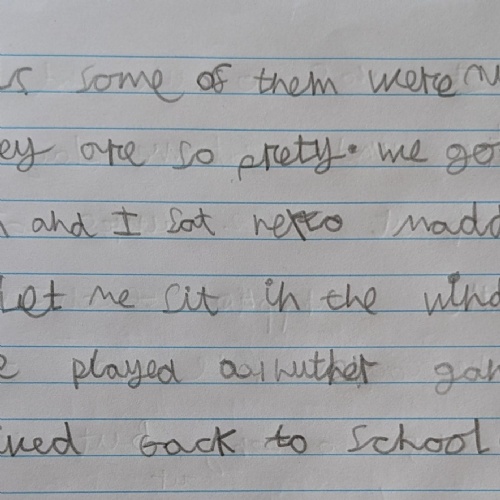 some of them were
ey are so prety. we go
and I sat nexto madd
Let me sit in the wind
e played anuther gam
ived back to school